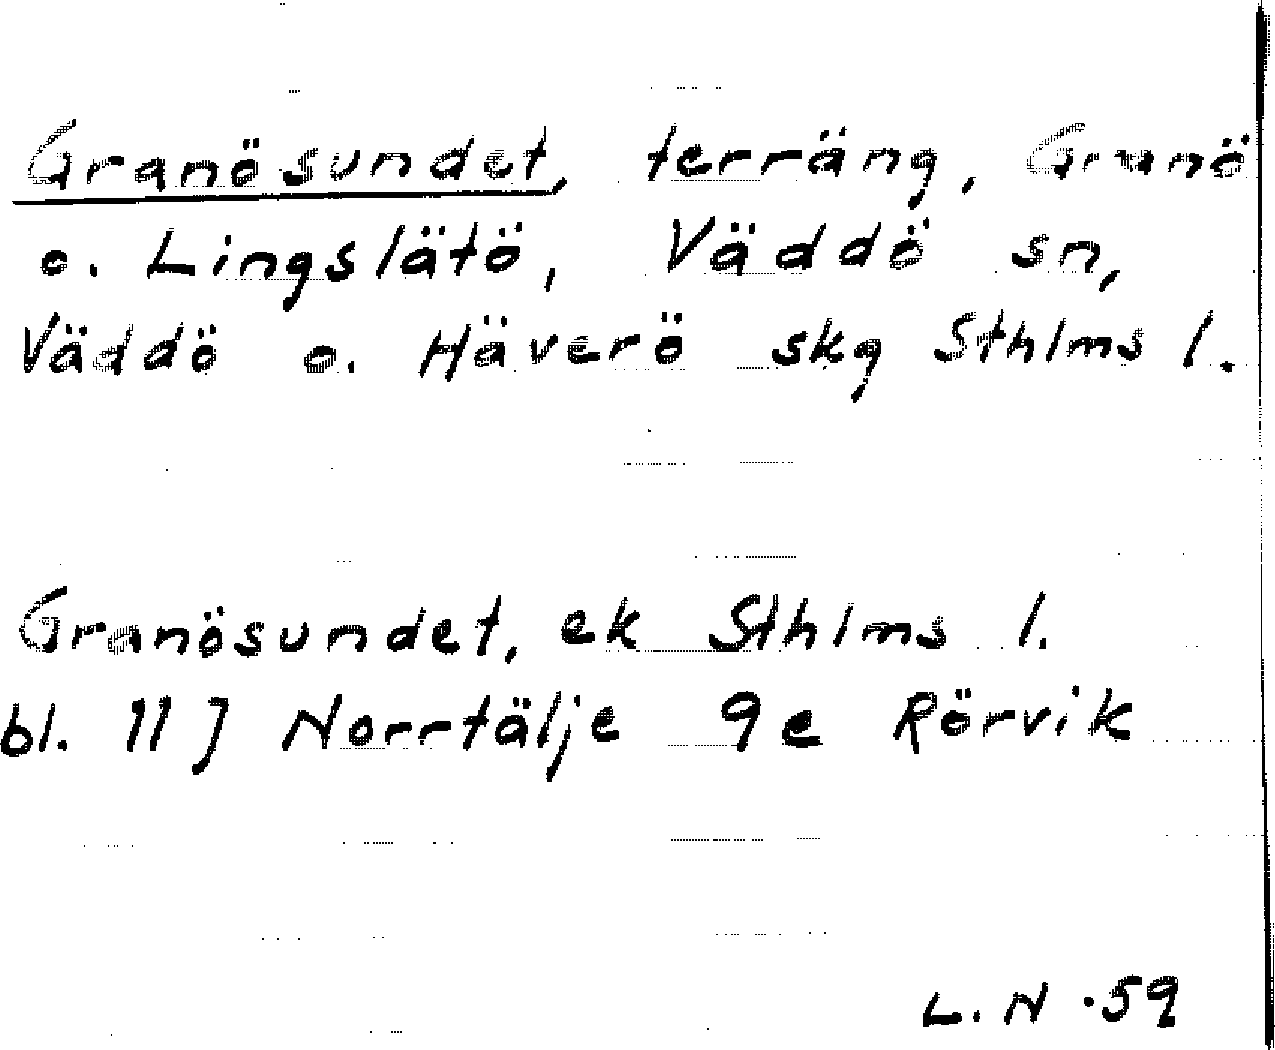 Granösundet, terräng, Granö
o. Lingslätö, Väddö sn,
Väddö o. Häverö skg Sthlms l.
Granösundet, ek Sthlms l.
bl. 11 J Norrtälje 9e Rörvik
L. N. 59